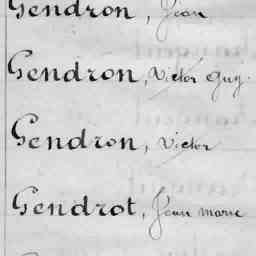 Gendron, Jean
Gendron, Victor Guy.
Gendron, Victor
Gendrot, Jean Marie